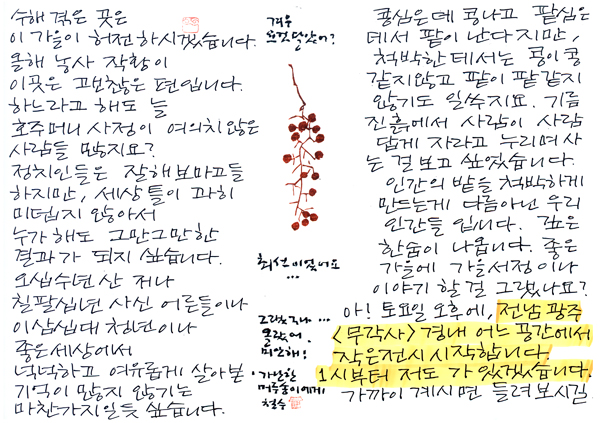 수해 겪은 곳은
이 가을이 허전하시겠습니다.
올해 농사 작황이
이곳은 괜찮은 편입니다.
하느라고 해도 늘
호주머니 사정이 여의치 않은
사람들 많지요?
정치인들은 잘해보마고들
하지만, 세상 틀이 과히
미덥지 않아서
누가 해도 그만그만한
결과가 되지 싶습니다.
오십수년 산 저나
칠팔십년 사신 어른들이나
이삼십대 청년이나
좋은세상에서
넉넉하고 여유롭게 살아본
기억이 많지 않기는
마찬가지일듯 싶습니다.
겨우
요것 달았어?
최선이었어요
...
그랬구나 ...
몰랐어.
미안해!
가난한
머루송이에게
철수
콩심은데 콩나고 팥심은
데서 팥이 난다지만,
척박한 데서는 콩이 콩
같지않고 팥이 팥 같지
않기도 일쑤지요. 기름
진 흙에서 사람이 사람
답게 자라고 누리며 사
는 걸 보고 싶었습니다.
인간의 밭을 척박하게
만드는게 다름아닌 우리
인간들 입니다. 깊은
한숨이 나옵니다. 좋은
가을에 가을서정이나
이야기 할 걸 그랬나요?
아! 토요일 오후에, 전남 광주
<무각사> 경내 어느 공간에서
작은전시 시작합니다.
1시부터 저도 가 있겠습니다.
가까이 계시면 들려보시길